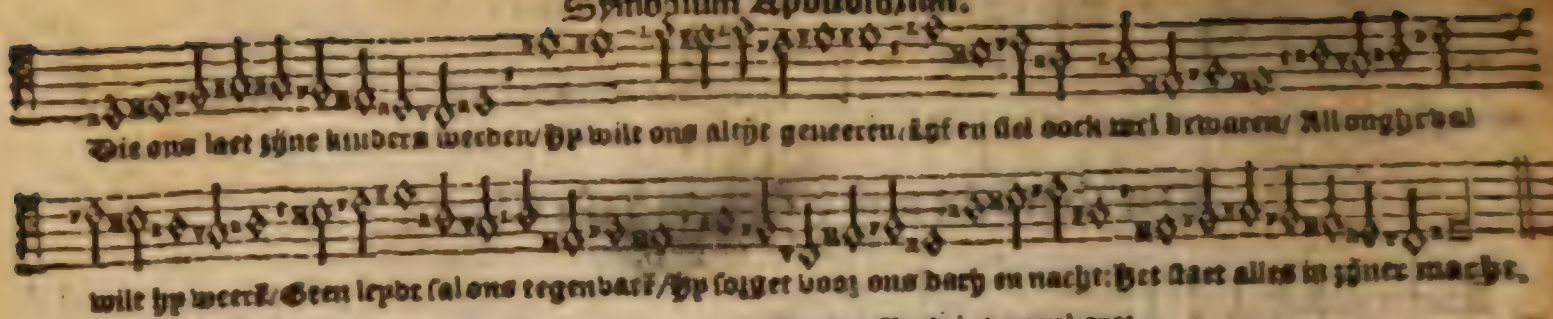 Symbolum Apostolorum.
Die ons laet zijne kinders werden/ Hy wilt ons altijt geneeren/ Lyf en siel oock wel bewaren/ All ongheval
wilt hy weerē/ Geen leyde sal ons tegenvarē/ Hy sorget voor ons dach en nacht: Het staet alles in zijner macht.